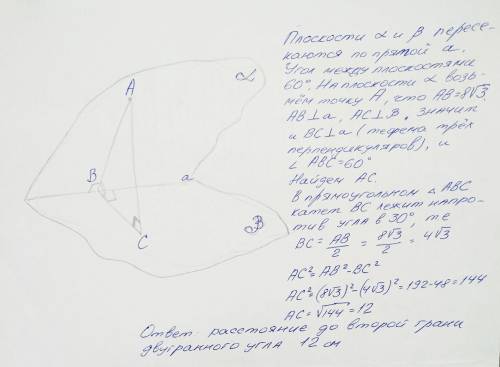 Плоскости α и β пересе-
каются по прямой а.
Угол между плоскостями
60°. На плоскости α возь-
мём точку А, что АВ=8√3.
АВ⊥а, АС⊥β. Значит
и ВС⊥а (теорема трёх
перпендикуляров), и
∠ АВС=60°
Найдем АС.
В прямоугольном △ АВС
катет ВС лежит напро-
тив угла в 30°, т.е
ВС = АВ/2 = 8√3/2 = 4√3
АС²=АВ²-ВС²
АС²=(8√3)²-(4√3)²=192-48=144
АС=√144=12
Ответ: расстояние до второй грани
двугранного угла 12 см
α
А
В
а
С
β